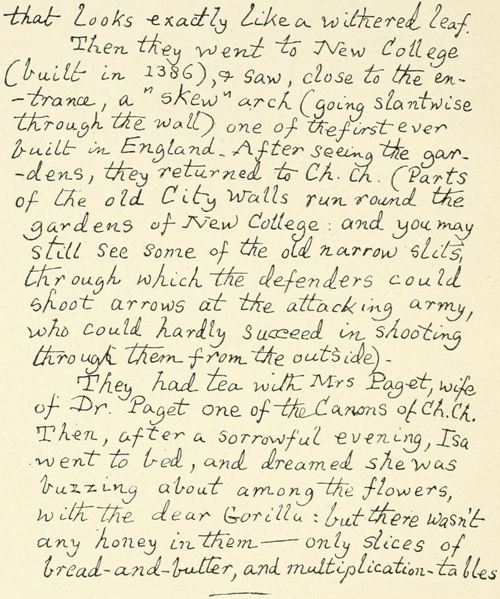 that looks exactly like a withered leaf.
Then they went to New College
(built in 1386), & saw, close to the en-
-trance, a "skew" arch (going slantwise
through the wall) one of the first ever
built in England. After seeing the gar-
-dens, they returned to Ch. Ch. (Parts
of the old City walls run round the
gardens of New College: and you may
still see some of the old narrow slits,
through which the defenders could
shoot arrows at the attacking army,
who could hardly succeed in shooting
through them from the outside).
They had tea with Mrs Paget, wife
of Dr. Paget one of the Canons of Ch. Ch.
Then, after a sorrowful evening, Isa
went to bed, and dreamed she was
buzzing about among the flowers,
with the dear Gorilla: but there wasn't
any honey in them — only slices of
bread-and-butter, and multiplication-tables